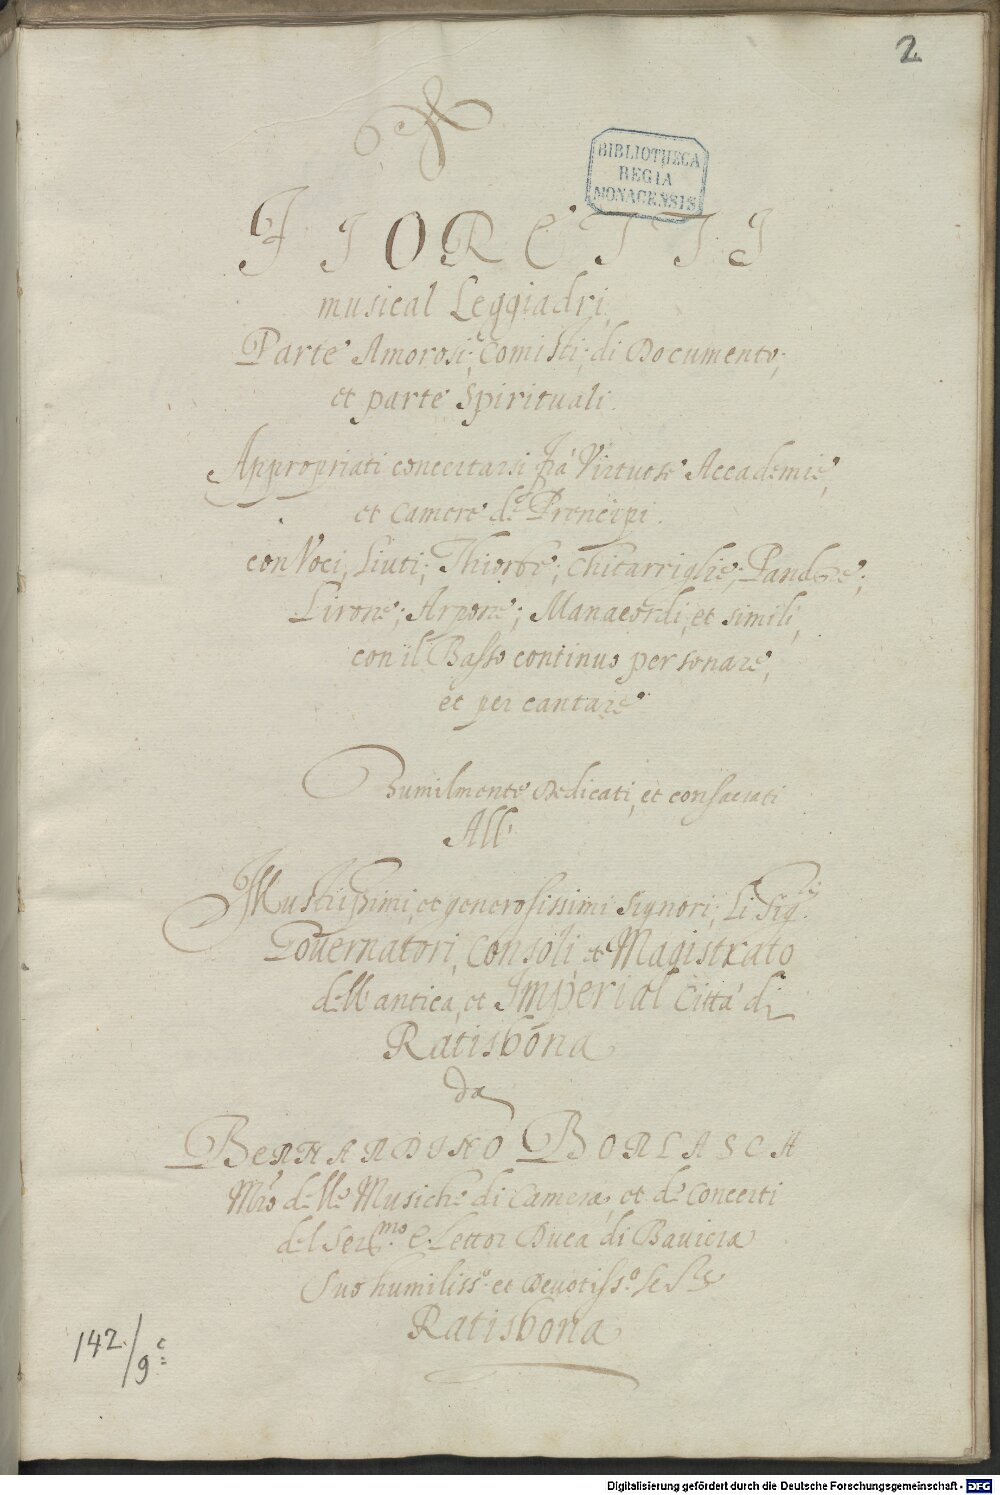 2
BIBLIOTHECA
REGIA
MONACENSIS
FIORETTI
musical Leggiadri,
Parte Amorosi; Comisti; di Documento;
et parte Spirituali.
Appropriati concertarsi frà Virtuose Accademie,
et Camere de Prencipi.
con Voci, Liuti; Thiorbe; Chitarriglie; Pandore;
Lirone; Arpone; Manacordi, et simili,
con il Basso continuo per sonare,
et per cantare
Humilmente Dedicati, et consacrati
All'
Illustrissimi, et generosissimi Signori, Li Sig.ri
Governatori, Consoli et Magistrato
dell'antica, et Imperial Città di
Ratisbona
da
BERNARDINO BORLASCA
Mro delle Musiche di Camera, et de Concerti
del Ser.mo Elettor Duca di Baviera
Suo humiliss.o et Devotiss.o
Ratisbona
142./9c
Digitalisierung gefördert durch die Deutsche Forschungsgemeinschaft - DFG